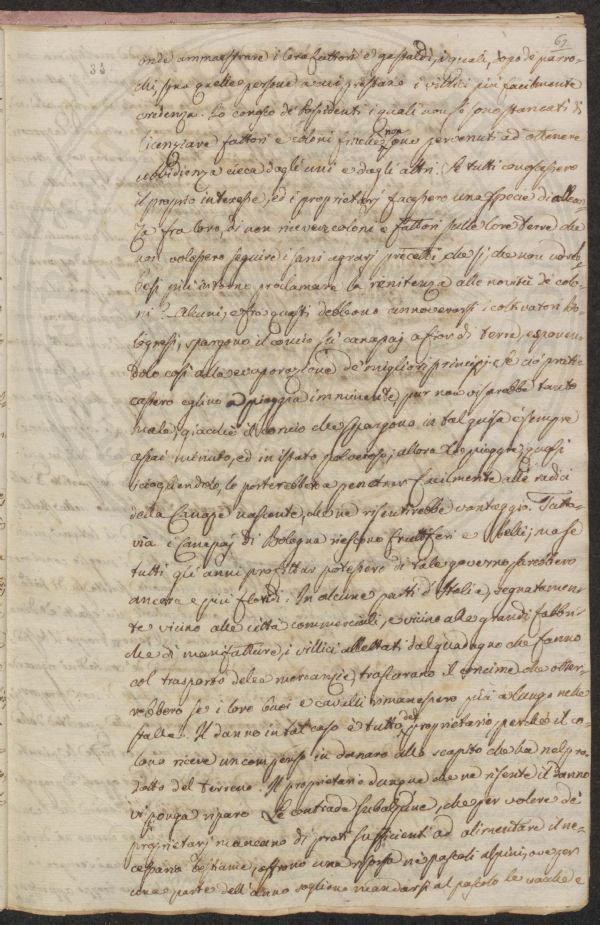 33
69
onde ammaestrare i loro fattori e gastaldi, i quali, dopo de' parro-
chi, sono quelle persone a cui prestano i villici più facilmente
credenza. Io conosco de' Possidenti i quali non si sono stancati di
licenziare fattori e coloni finchè non sono pervenuti ad ottenere
ubbidienza cieca dagli uni e dagli altri. Se tutti conoscessero
il proprio interesse, ed i proprietarj facessero una specie di allean-
za fra loro, di non ricever coloni e fattori sulle loro terre che
non volessero seguire i sani agrarj precetti che sì, che non udreb-
besi più intorno proclamare la renitenza alle novità de' colo-
ni? Alcuni, e fra questi debbono annoverarsi i coltivatori Bo-
lognesi, spargono il concio su' canapaj a fior di terra, esponen-
dolo così alla evaporazione de' migliori principj. Se ciò prati-
cassero eglino a pioggia imminente, pur non vi sarebbe tanto
male, giacchè il concio che spargono in tal guisa è sempre
assai minuto, ed in istato polveroso; allora le piogge, quasi
sciogliendolo, lo porterebbero a penetrar facilmente alle radici
della Canape nascente, che ne risentirebbe vantaggio. Tutta-
via i Canapaj di Bologna riescono fruttiferi e belli; ma se
tutti gli anni profittar potessero di tale governo sarebbero
ancora e più floridi. In alcune parti d'Italia, segnatamen-
te vicino alle città commerciali, e vicino alle grandi fabbri-
che di manifatture, i villici allettati dal guadagno che fanno
col trasporto delle mercanzie, trascurano il concime che otter-
rebbero se i loro buoi e cavalli rimanessero più a lungo nelle
stalle. Il danno in tal caso è tutto del proprietario perchè il co-
lono riceve un compenso in danaro allo scapito che ha nel pro-
dotto del terreno. Il proprietario dunque che ne risente il danno
vi ponga riparo. Le contrade subalpine, che per volere de'
proprietarj mancano di prati sufficienti ad alimentare il ne-
cessario bestiame, offrono una risorsa ne' pascoli alpini, ove per
una parte dell'anno sogliono mandarsi al pascolo le vacche e